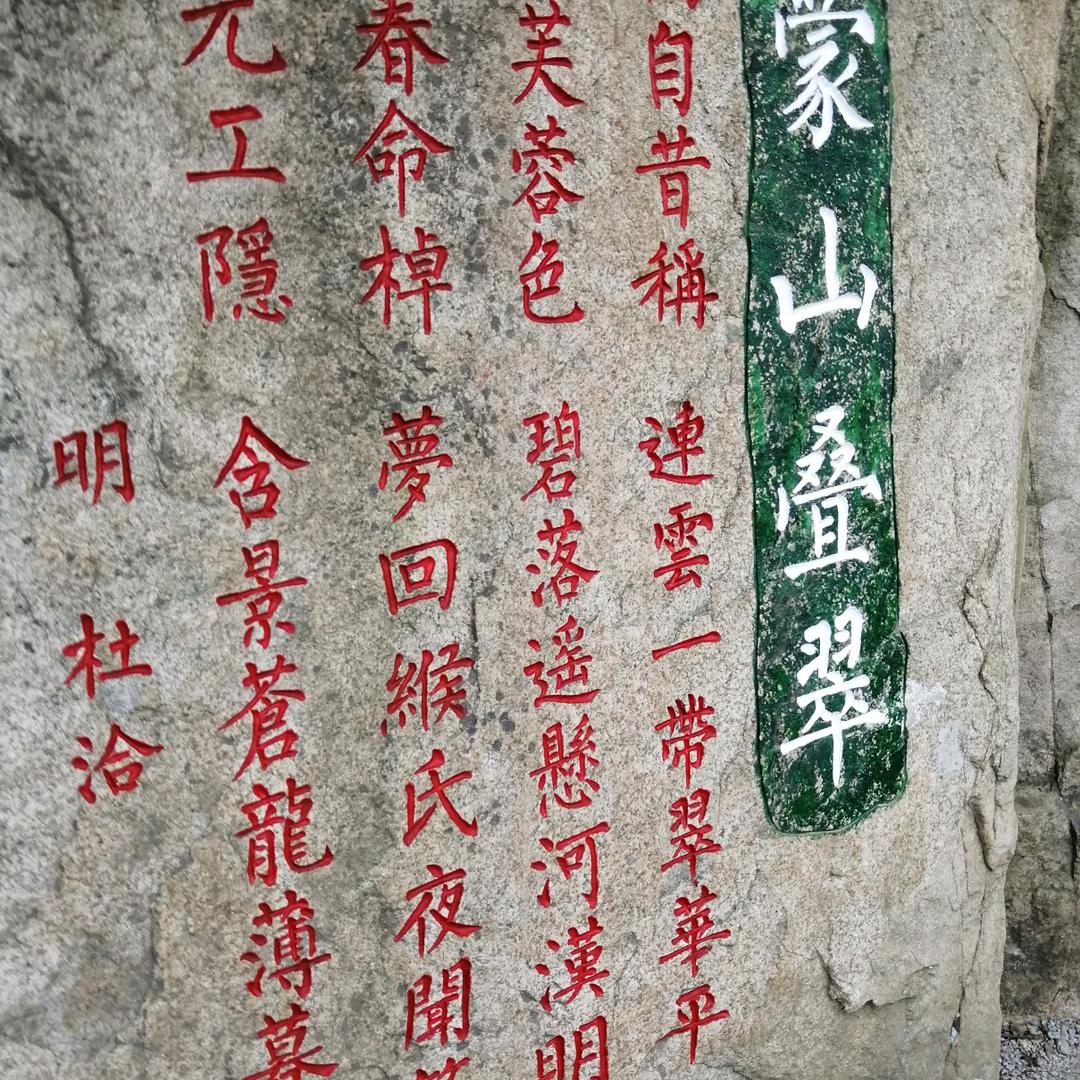 蒙山叠翠
自昔稱 連雲一帶翠華平
芙蓉色 碧落遥懸河漢明
春命棹 夢回緱氏夜聞
元工隱 含景蒼龍薄暮
明 杜洽